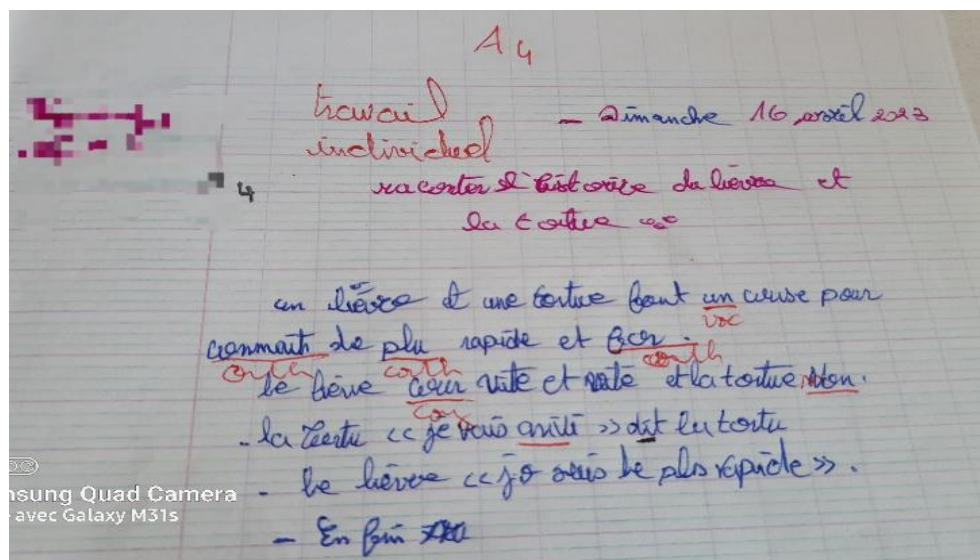 A4
travail
individuel
- Dimanche 16 avril 2023
4
raconter l'histoire du lièvre et
la tortue
un lièvre et une tortue font un course pour
voc
connait de plu rapide et
orth orth orth
le lièvre cour vite et vite et la tortue non.
- la «je vais» dit la tortu
- le lièvre «je suis le plus rapide».
- En fin
nsung Quad Camera
avec Galaxy M31s